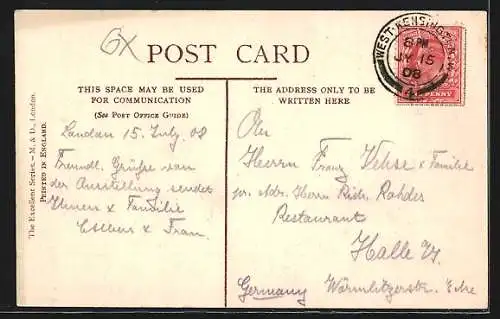 6X
POST CARD
THIS SPACE MAY BE USED
FOR COMMUNICATION
(See POST OFFICE GUIDE)
THE ADDRESS ONLY TO BE
WRITTEN HERE
WEST-KENSINGTON
8 PM
JY 15
08
4
PENNY
The Excellent Series. – M. & D., London.
PRINTED IN ENGLAND.
London 15. July. 08
Freundl. Grüsse von
der Ausstellung sendet
Ihnen & Familie
& Frau.
An
Herrn Franz Vehse & Familie
pr. Adr. Herrn Rohdes
Restaurant
Halle
Germany Wörmlitzerstr. Ecke